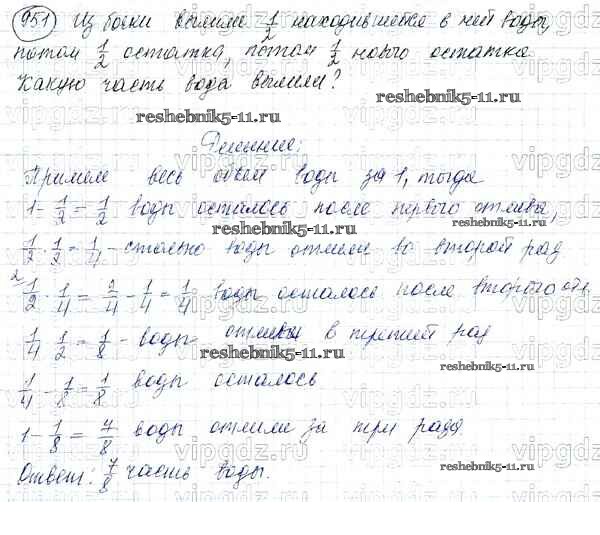 951 Из бочки вылили 1/2 находившейся в ней воды,
потом 1/2 остатка, потом 1/2 нового остатка
Какую часть вода вылили?
reshebnik5-11.ru
reshebnik5-11.ru
Решение:
Примем весь объем воды за 1, тогда
1 - 1/2 = 1/2 воды осталось после первого отлива,
reshebnik5-11.ru
1/2 · 1/2 = 1/4 - столько воды отлили во второй раз
2 1/2 - 1/4 = 2/4 - 1/4 = 1/4 воды осталось после второго отл.
reshebnik5-11.ru
1/4 · 1/2 = 1/8 - воды отлили в третий раз
reshebnik5-11.ru
1/4 - 1/8 = 1/8 воды осталось
1 - 1/8 = 7/8 воды отлили за три раза
Ответ: 7/8 часть воды.
reshebnik5-11.ru
vipgdz.ru